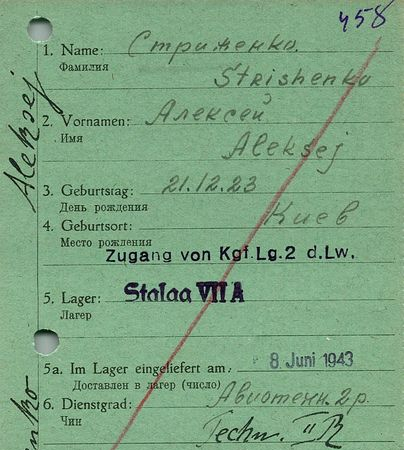 458
1. Name: Стриженко.
Фамилия
Strishenko
2. Vornamen: Алексей
Имя
Aleksej
3. Geburtstag: 21.12.23
День рождения
4. Geburtsort: Киев
Место рождения
Zugang von Kgf.Lg.2 d.Lw.
5. Lager: Stalag VII A
Лагерь
5a. Im Lager eingeliefert am: 8. Juni 1943
Доставлен в лагерь (число)
6. Dienstgrad: Авиотехн. 2р.
Чин
Techn. II R
Aleksej